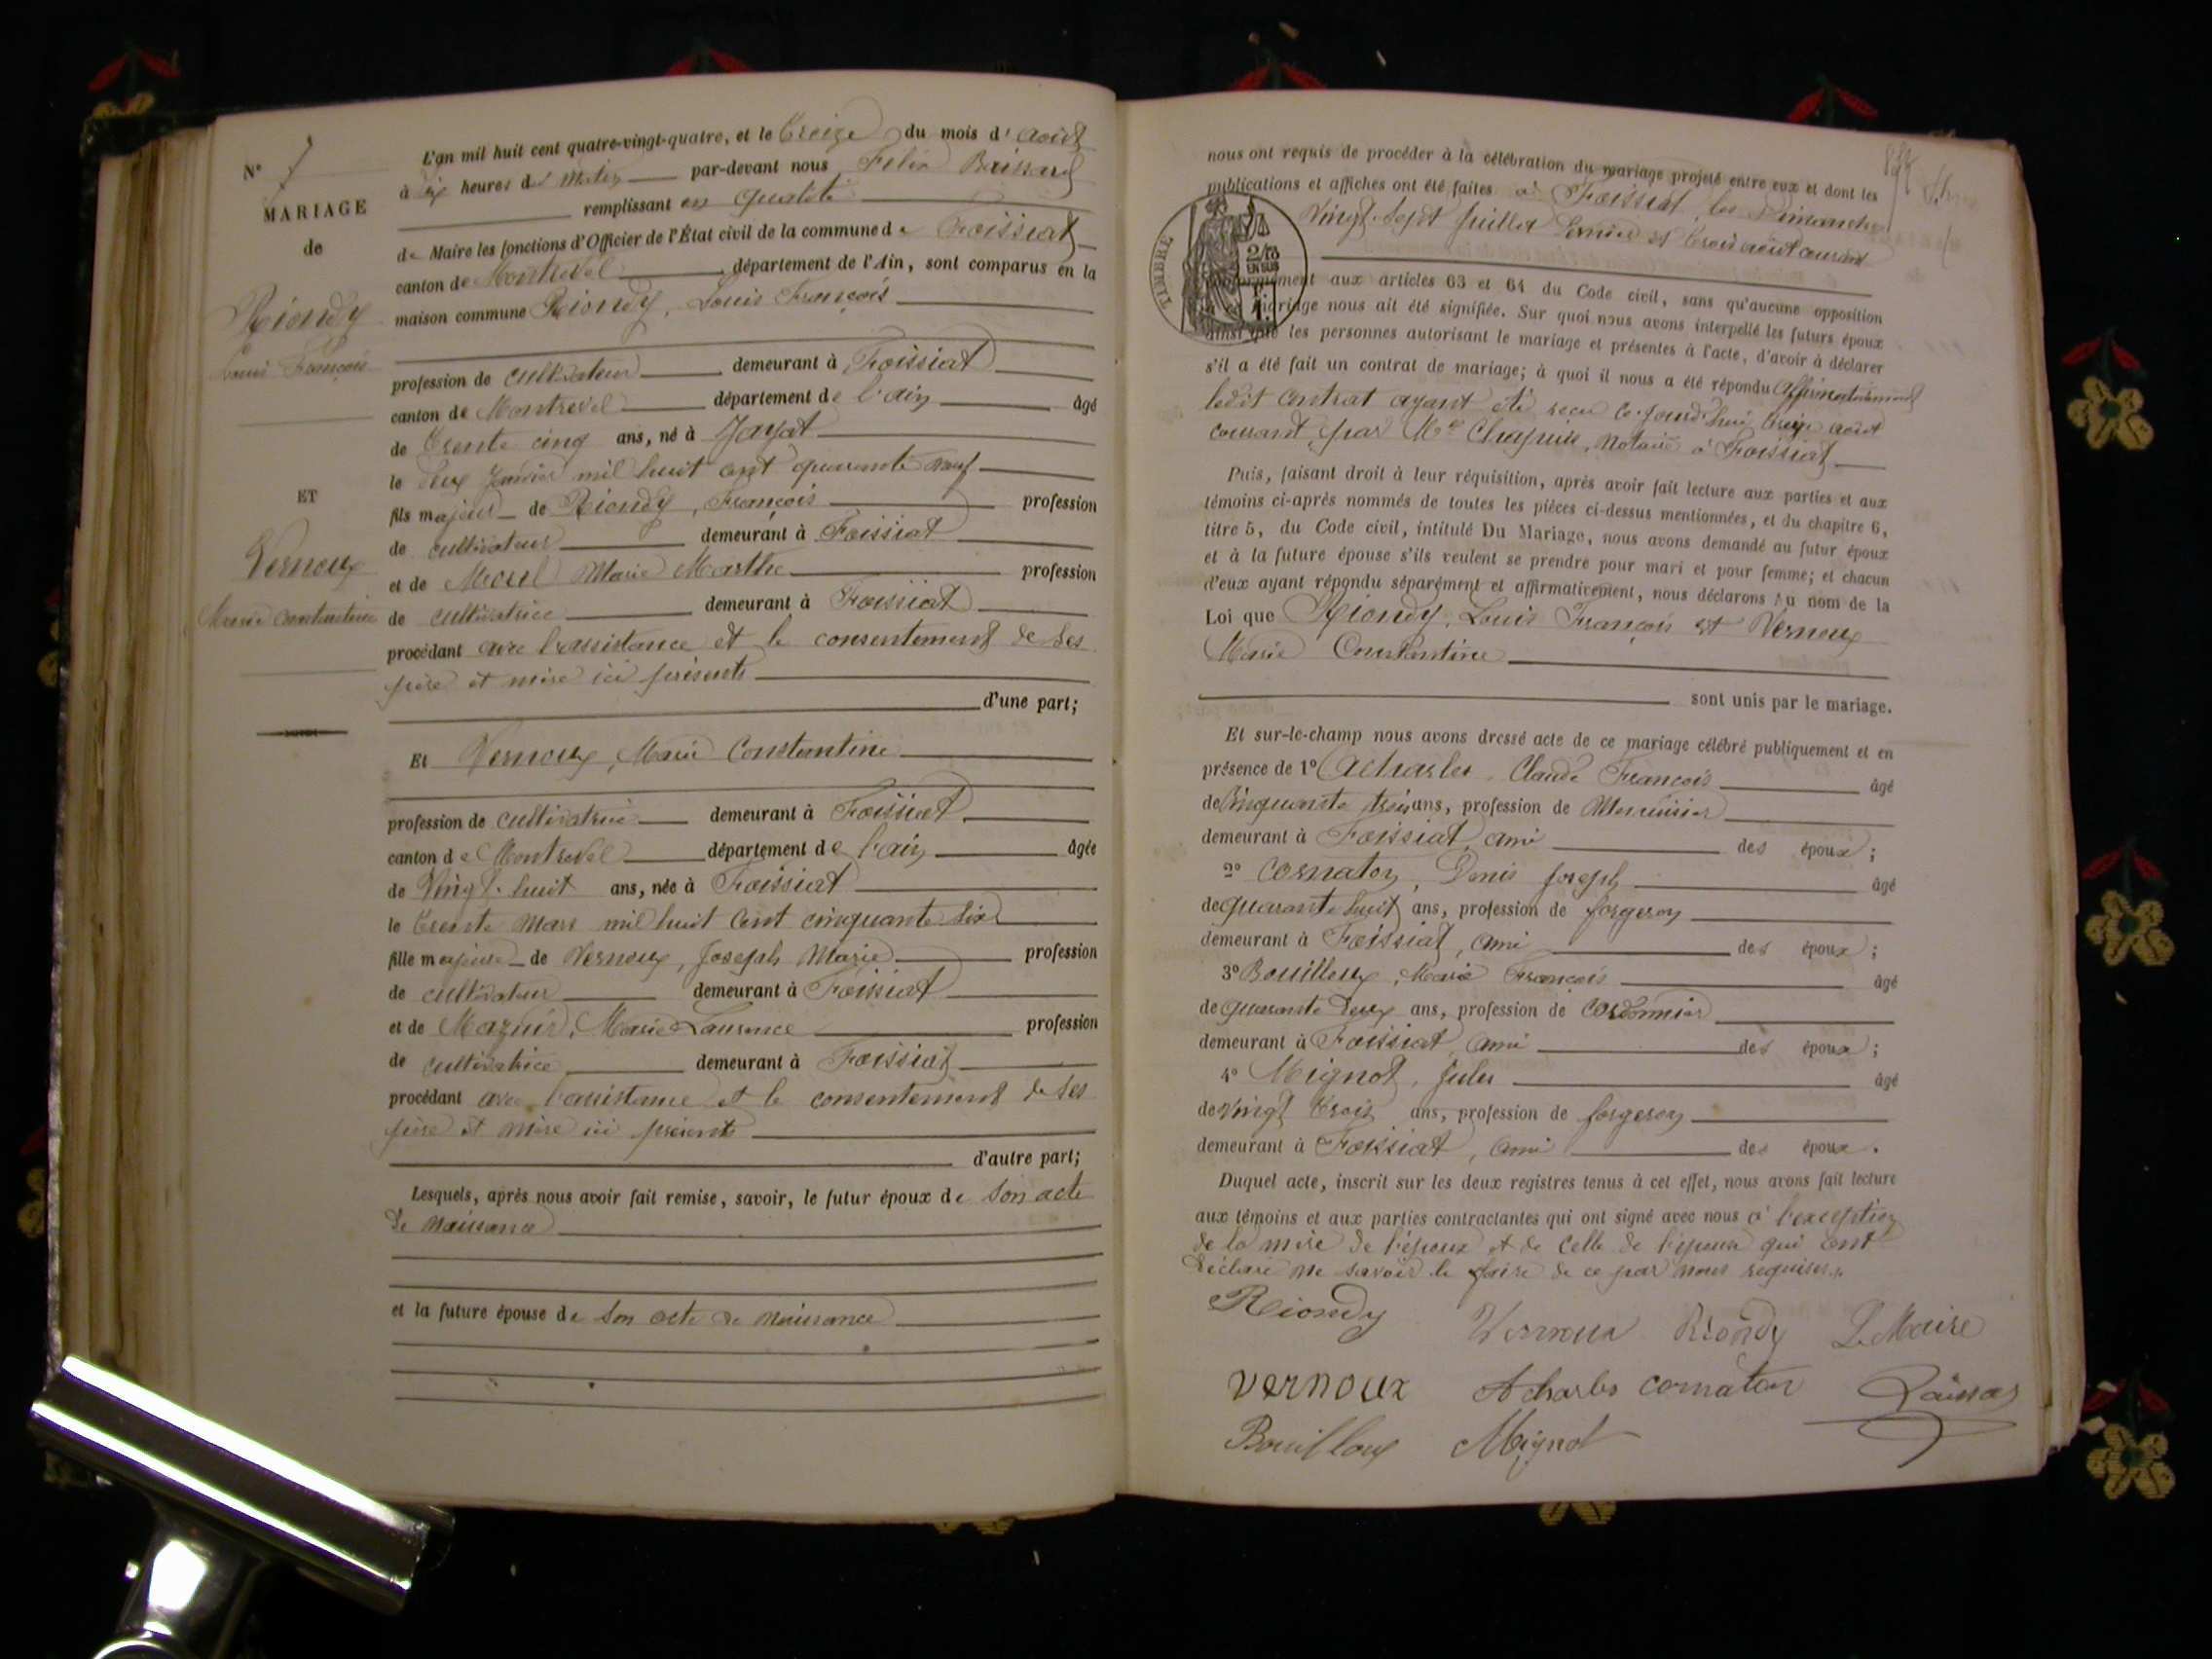 N° 7
MARIAGE
de
Riondy
Louis François
ET
Vernoux
Marie Constantine
L'an mil huit cent quatre-vingt-quatre, et le treize du mois d'août
à dix heures du matin par-devant nous Félix
remplissant en qualité
de Maire les fonctions d'Officier de l'État civil de la commune de Foissiat
canton de Montrevel département de l'Ain, sont comparus en la
maison commune Riondy, Louis François
profession de cultivateur demeurant à Foissiat
canton de Montrevel département de l'ain âgé
de trente cinq ans, né à Jayat
le deux Janvier mil huit cent quarante neuf
fils majeur de Riondy, François profession
de cultivateur demeurant à Foissiat
et de Marie Marthe profession
de cultivatrice demeurant à Foissiat
procédant avec l'assistance et le consentement de ses
père et mère ici présents
d'une part;
Et Vernoux, Marie Constantine
profession de cultivatrice demeurant à Foissiat
canton de Montrevel département de l'ain âgée
de Vingt-huit ans, née à Foissiat
le trente Mars mil huit cent cinquante six
fille majeure de Vernoux, Joseph Marie profession
de cultivateur demeurant à Foissiat
et de Mazuir, Marie Laurence profession
de cultivatrice demeurant à Foissiat
procédant avec l'assistance et le consentement de ses
père et mère ici présents
d'autre part;
Lesquels, après nous avoir fait remise, savoir, le futur époux de son acte
de naissance
et la future épouse de son acte de naissance
nous ont requis de procéder à la célébration du mariage projeté entre eux et dont les
publications et affiches ont été faites à Foissiat, les Dimanches
Vingt-sept juillet dernier et trois août courant
TIMBRE
2/10
EN SUS
conformément aux articles 63 et 64 du Code civil, sans qu'aucune opposition
mariage nous ait été signifiée. Sur quoi nous avons interpellé les futurs époux
ainsi que les personnes autorisant le mariage et présentes à l'acte, d'avoir à déclarer
s'il a été fait un contrat de mariage; à quoi il nous a été répondu affirmativement
ledit contrat ayant été reçu ce jourd'hui treize août
courant, par Me Chapuis, notaire à Foissiat
Puis, faisant droit à leur réquisition, après avoir fait lecture aux parties et aux
témoins ci-après nommés de toutes les pièces ci-dessus mentionnées, et du chapitre 6,
titre 5, du Code civil, intitulé Du Mariage, nous avons demandé au futur époux
et à la future épouse s'ils veulent se prendre pour mari et pour femme; et chacun
d'eux ayant répondu séparément et affirmativement, nous déclarons au nom de la
Loi que Riondy, Louis François et Vernoux
Marie Constantine
sont unis par le mariage.
Et sur-le-champ nous avons dressé acte de ce mariage célébré publiquement et en
présence de 1° Acharles, Claude François âgé
de Cinquante trois ans, profession de Menuisier
demeurant à Foissiat, ami des époux;
2° Cornaton, Denis Joseph âgé
de quarante huit ans, profession de forgeron
demeurant à Foissiat, ami des époux;
3° Bouilloux, Marie François âgé
de quarante deux ans, profession de Cordonnier
demeurant à Foissiat, ami des époux;
4° Mignot, Jules âgé
de Vingt trois ans, profession de forgeron
demeurant à Foissiat, ami des époux.
Duquel acte, inscrit sur les deux registres tenus à cet effet, nous avons fait lecture
aux témoins et aux parties contractantes qui ont signé avec nous à l'exception
de la mère de l'époux et de celle de l'épouse qui ont
déclaré ne savoir le faire de ce par nous requises.
Riondy Vernoux Riondy Le Maire
vernoux Acharles cornaton
Bouilloux Mignot